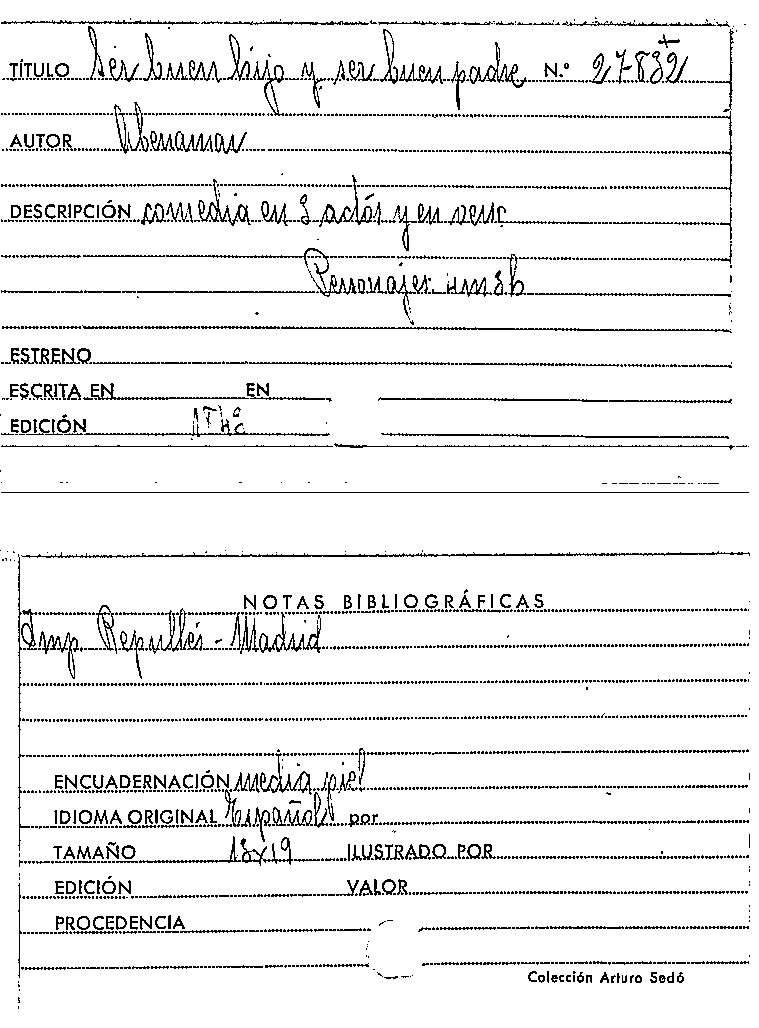 TÍTULO Ser buen hijo y ser buen padre N.º 27832
AUTOR Abenamar
DESCRIPCIÓN comedia en 3 actos y en verso
Personajes
ESTRENO
ESCRITA EN EN
EDICIÓN
NOTAS BIBLIOGRÁFICAS
Imp. Repullés - Madrid
ENCUADERNACIÓN media piel
IDIOMA ORIGINAL Español por
TAMAÑO 13x19 ILUSTRADO POR
EDICIÓN VALOR
PROCEDENCIA
Colección Arturo Sedó